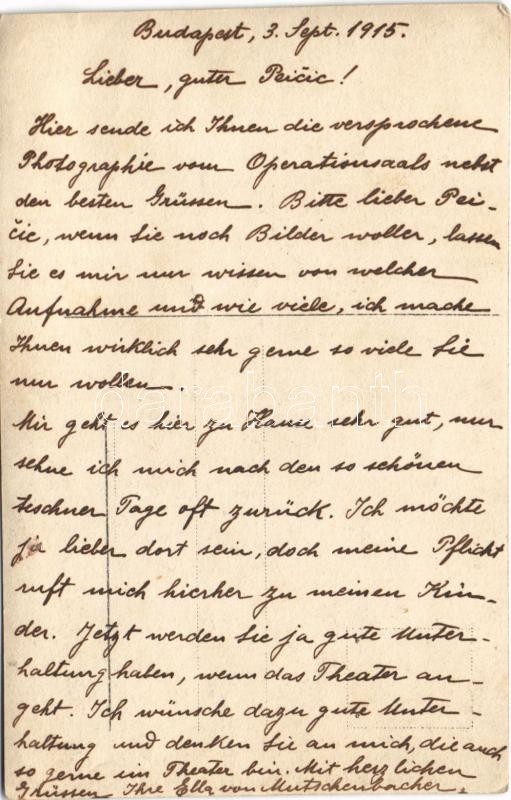 Budapest, 3. Sept. 1915.
Lieber, guter Peičić!
Hier sende ich Ihnen die versprochene
Photographie vom Operationsaals nebst
den besten Grüssen. Bitte lieber Pei-
čić, wenn Sie noch Bilder woller, lassen
Sie es mir nur wissen von welcher
Aufnahme und wie viele, ich mache
Ihnen wirklich sehr gerne so viele Sie
nur wollen.
Mir geht es hier zu Hause sehr gut, nur
sehne ich mich nach den so schönen
teschner Tage oft zurück. Ich möchte
ja lieber dort sein, doch meine Pflicht
ruft mich hierher zu meinen Kin-
der. Jetzt werden Sie ja gute Unter-
haltung haben, wenn das Theater an-
geht. Ich wünsche dazu gute Unter-
haltung und denken Sie an mich, die auch
so gerne im Theater bin. Mit herzlichen
Grüssen Ihre Ella von Mutschenbacher.
darabanth